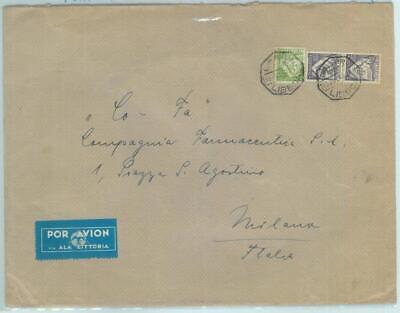 "Co - Fa"
Compagnia Farmaceutica S. A.
1, Piazza S. Agostino
Milano
Italia
POR AVION
VIA ALA LITTORIA